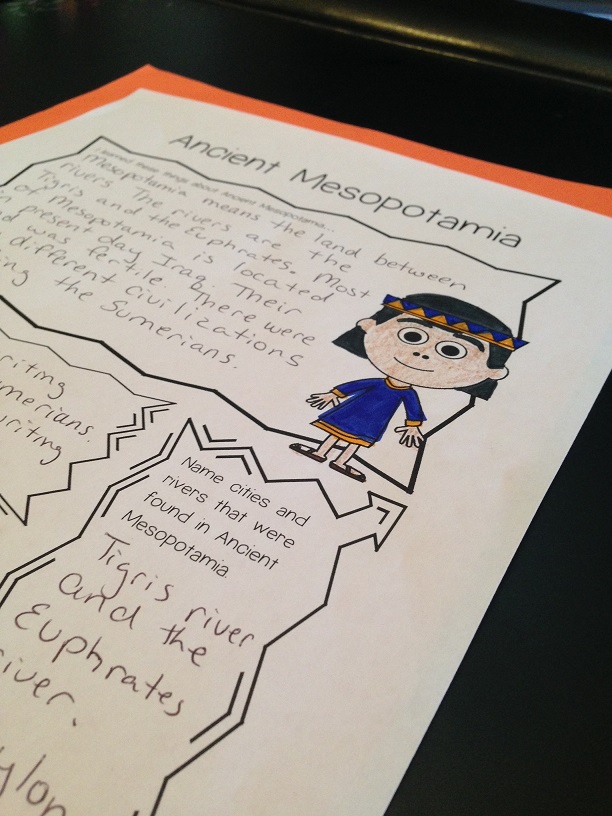 Ancient Mesopotamia
I learned these things about Ancient Mesopotamia...
Mesopotamia means the land between
rivers. The rivers are the
Tigris and the Euphrates. Most
of Mesopotamia is located
in present day Iraq. Their
was fertile. There were
different civilizations
the Sumerians.
Name cities and
rivers that were
found in Ancient
Mesopotamia.
Tigris river
and the
Euphrates
river.